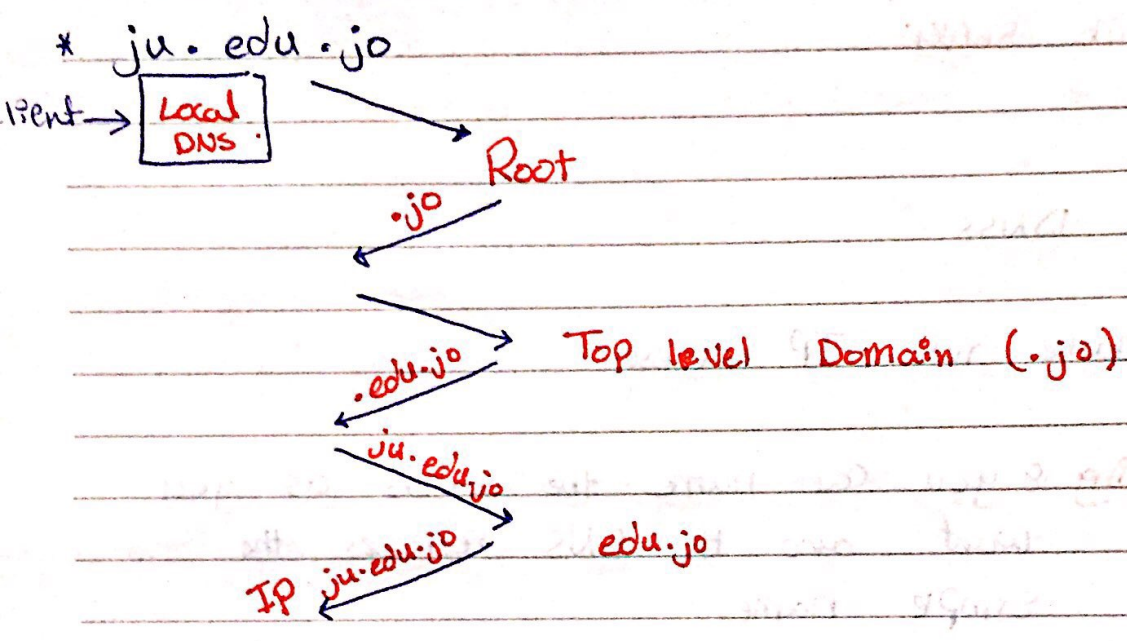 * ju.edu.jo
lient → Local
DNS
Root
.jo
Top level Domain (.jo)
.edu.jo
ju.edu.jo
edu.jo
IP ju.edu.jo